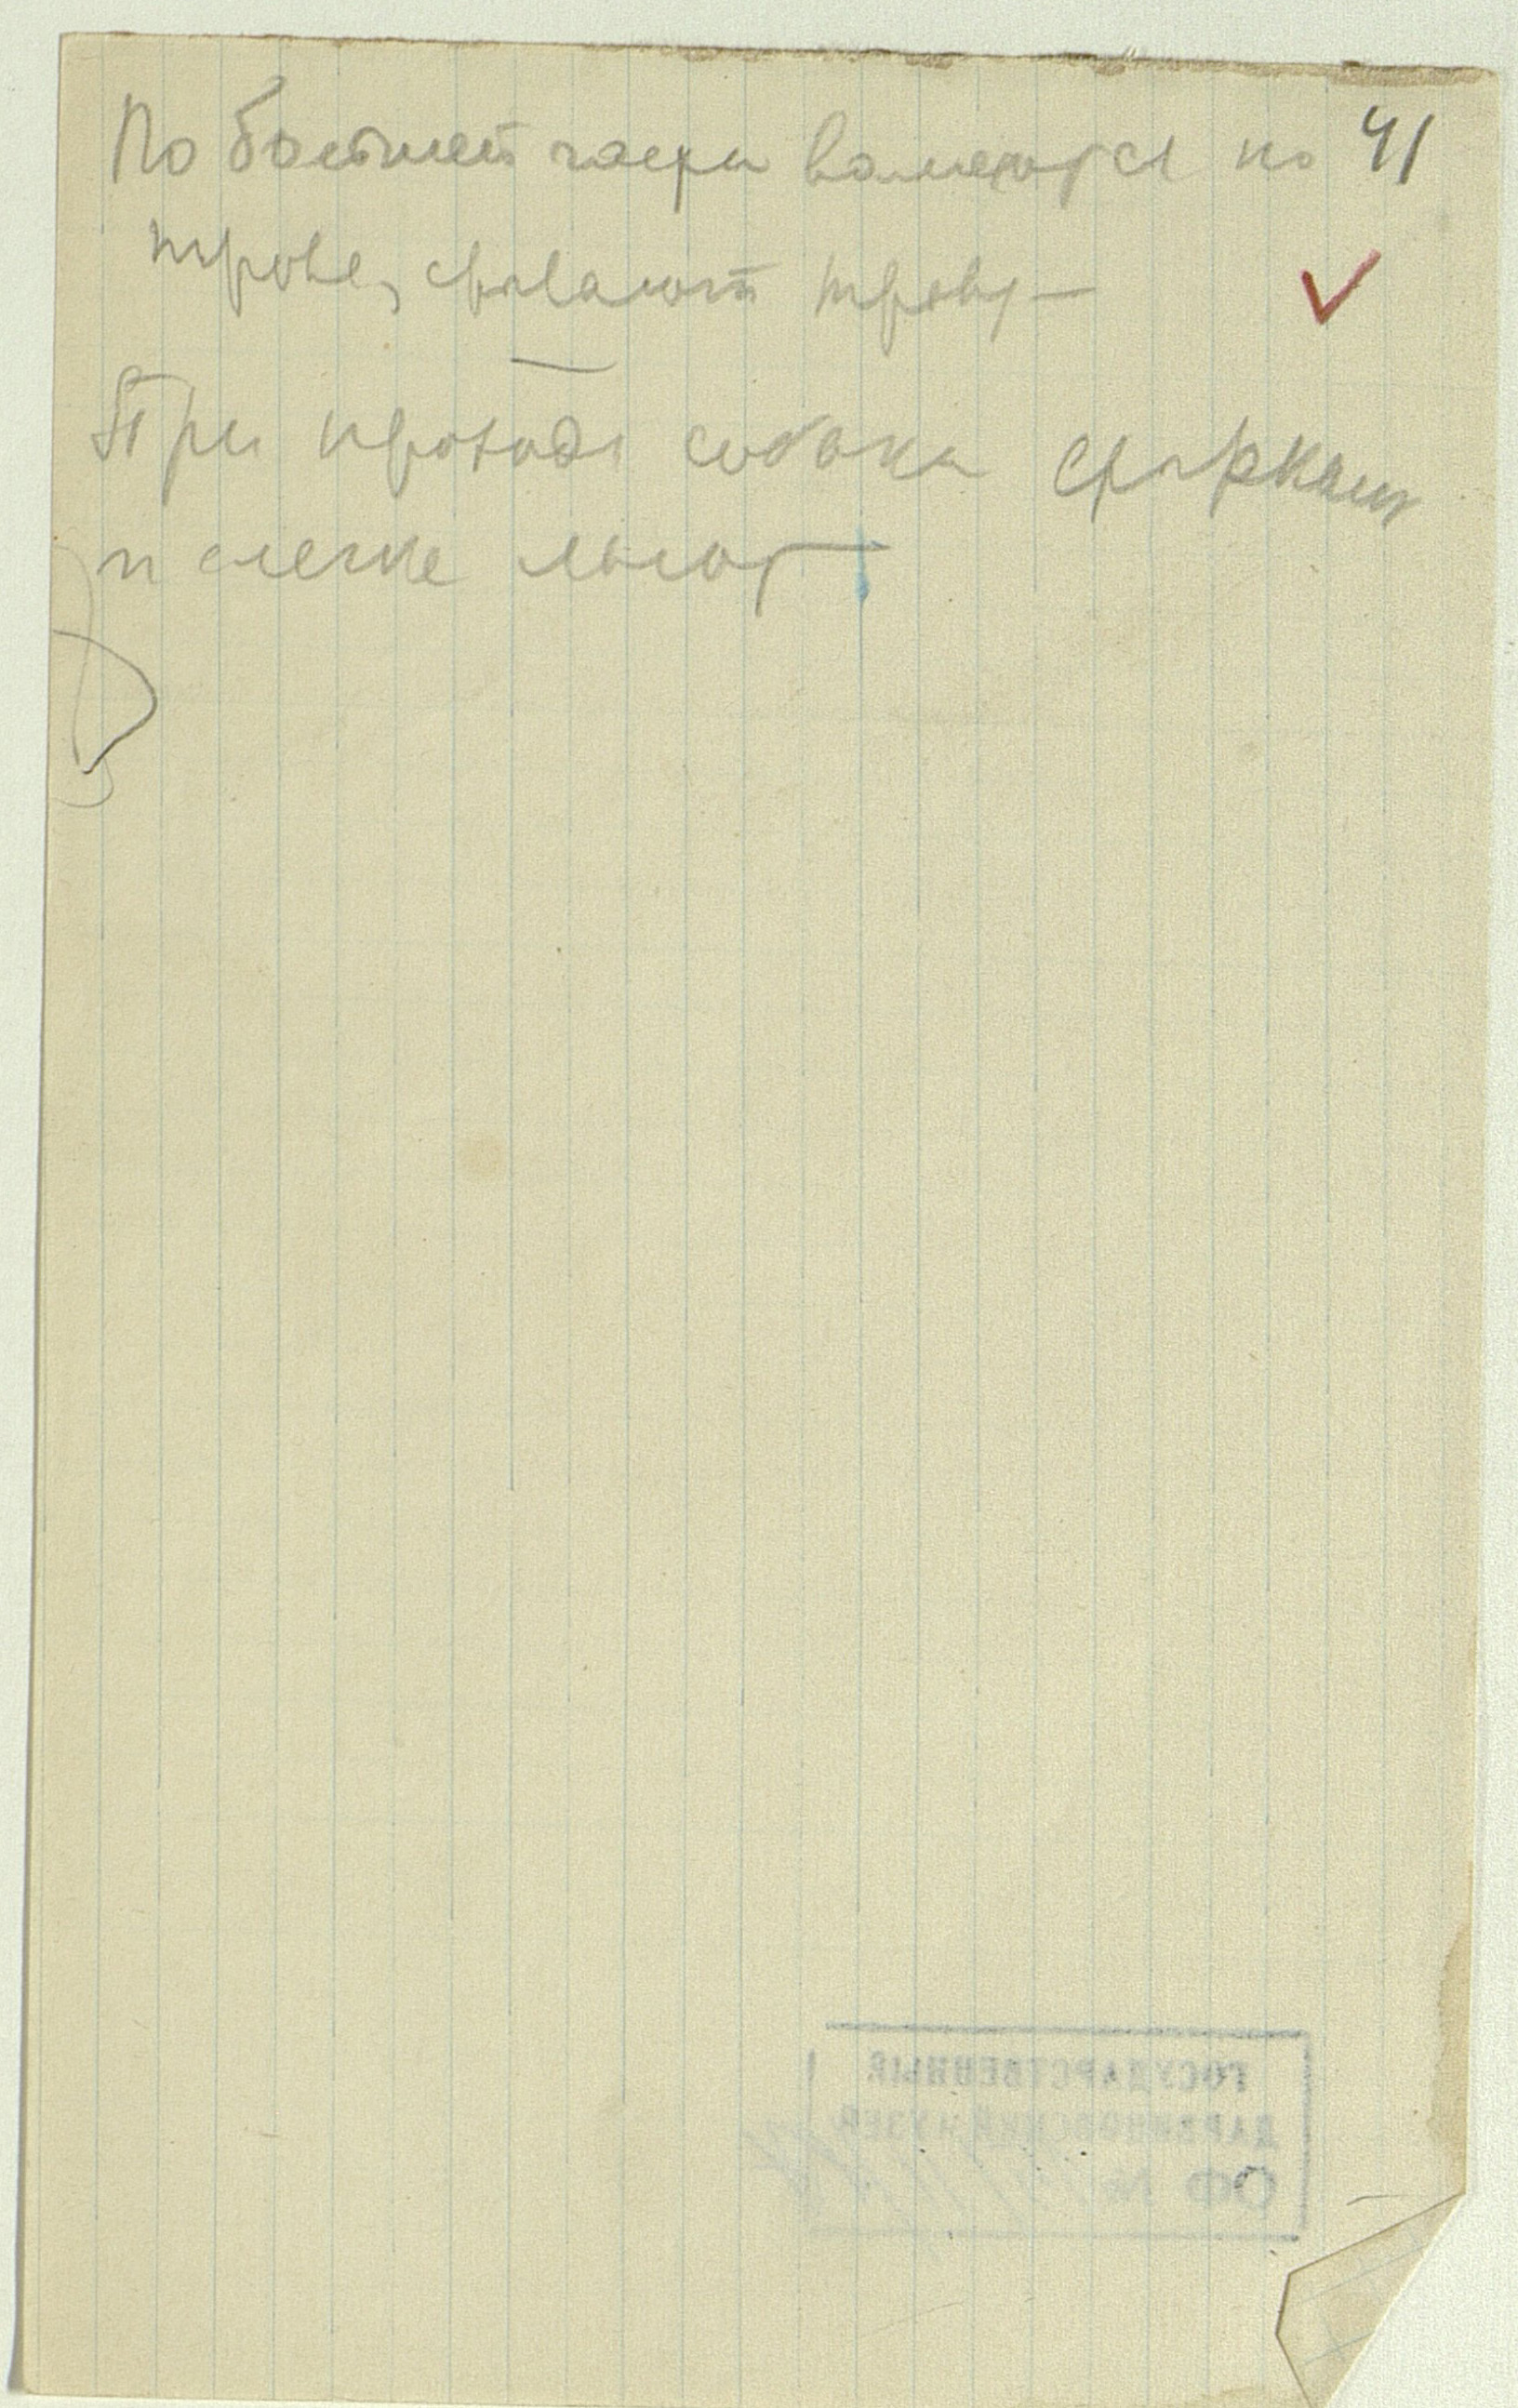 По большей части валяются по 41
траве, срывают траву —
При проходе собаки фыркают
и слегка лают
ГОСУДАРСТВЕННЫЙ
ДАРВИНОВСКИЙ МУЗЕЙ
ОФ №